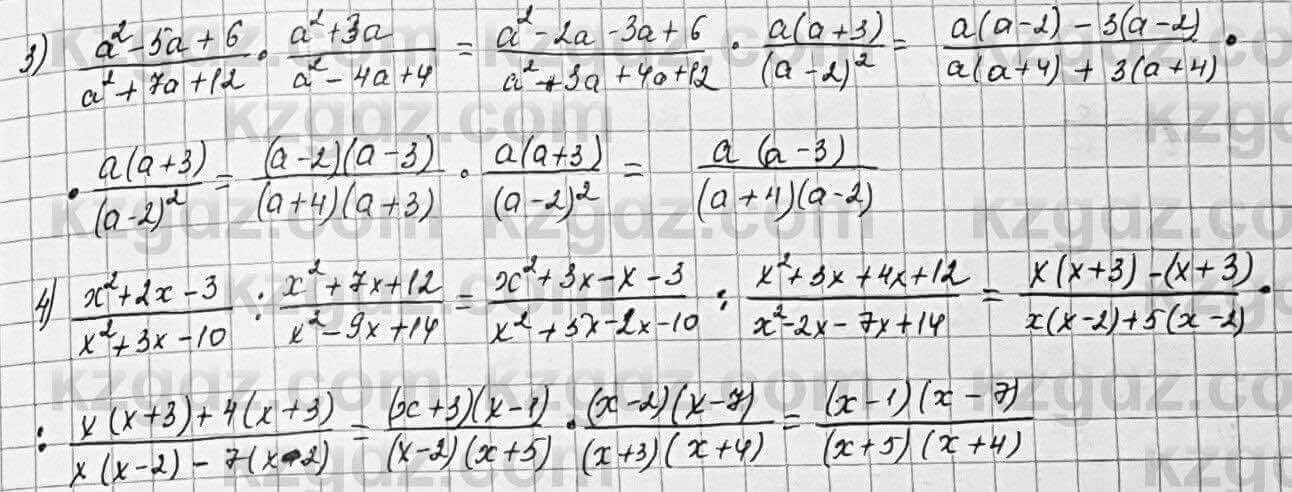 3) (a² - 5a + 6)/(a² + 7a + 12) · (a² + 3a)/(a² - 4a + 4) = (a² - 2a - 3a + 6)/(a² + 3a + 4a + 12) · a(a + 3)/(a - 2)² = (a(a - 2) - 3(a - 2))/(a(a + 4) + 3(a + 4)) ·
· a(a + 3)/(a - 2)² = (a - 2)(a - 3)/(a + 4)(a + 3) · a(a + 3)/(a - 2)² = a(a - 3)/(a + 4)(a - 2)
4) (x² + 2x - 3)/(x² + 3x - 10) : (x² + 7x + 12)/(x² - 9x + 14) = (x² + 3x - x - 3)/(x² + 5x - 2x - 10) : (x² + 3x + 4x + 12)/(x² - 2x - 7x + 14) = (x(x + 3) - (x + 3))/(x(x - 2) + 5(x - 2)) ·
: (x(x + 3) + 4(x + 3))/(x(x - 2) - 7(x - 2)) = (x + 3)(x - 1)/(x - 2)(x + 5) · (x - 2)(x - 7)/(x + 3)(x + 4) = (x - 1)(x - 7)/(x + 5)(x + 4)
kzgdz.com